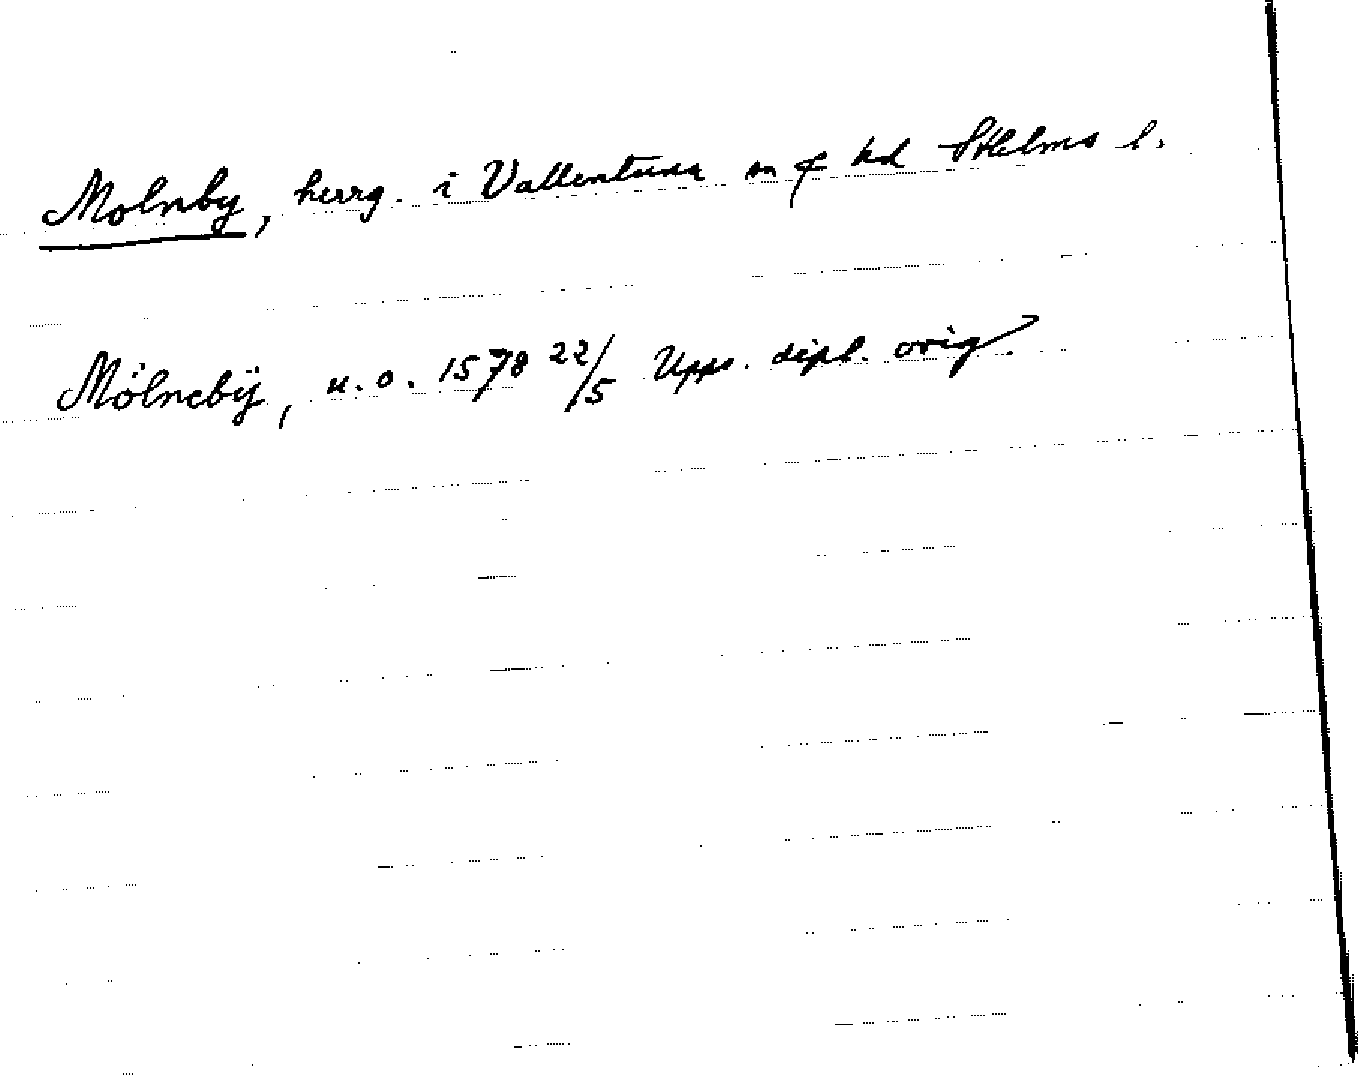 Molnby, herrg. i Vallentuna sn & hd Sthlms l.
Mölnebÿ, u.o. 1578 22/5 Upps. dipl. orig.